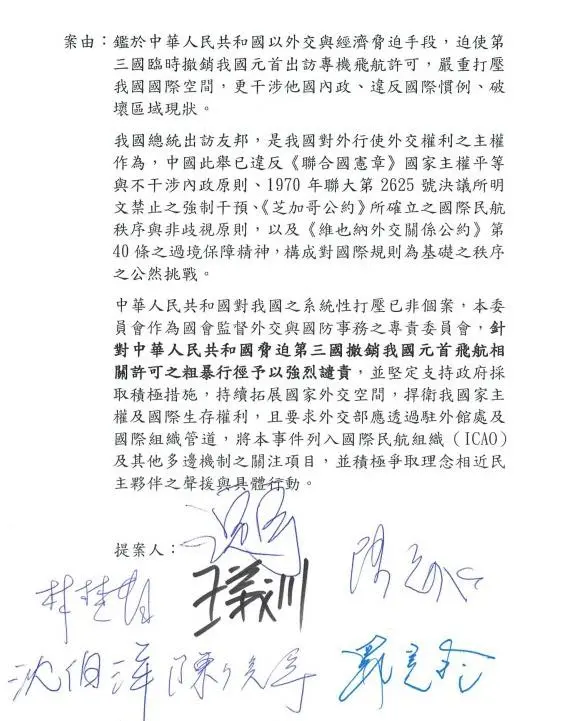 案由：鑑於中華人民共和國以外交與經濟脅迫手段，迫使第
三國臨時撤銷我國元首出訪專機飛航許可，嚴重打壓
我國國際空間，更干涉他國內政、違反國際慣例、破
壞區域現狀。
我國總統出訪友邦，是我國對外行使外交權利之主權
作為，中國此舉已違反《聯合國憲章》國家主權平等
與不干涉內政原則、1970 年聯大第 2625 號決議所明
文禁止之強制干預、《芝加哥公約》所確立之國際民航
秩序與非歧視原則，以及《維也納外交關係公約》第
40 條之過境保障精神，構成對國際規則為基礎之秩序
之公然挑戰。
中華人民共和國對我國之系統性打壓已非個案，本委
員會作為國會監督外交與國防事務之專責委員會，針
對中華人民共和國脅迫第三國撤銷我國元首飛航相
關許可之粗暴行徑予以強烈譴責，並堅定支持政府採
取積極措施，持續拓展國家外交空間，捍衛我國家主
權及國際生存權利，且要求外交部應透過駐外館處及
國際組織管道，將本事件列入國際民航組織（ICAO）
及其他多邊機制之關注項目，並積極爭取理念相近民
主夥伴之聲援與具體行動。
提案人：
王義川
沈伯洋 陳俊宇